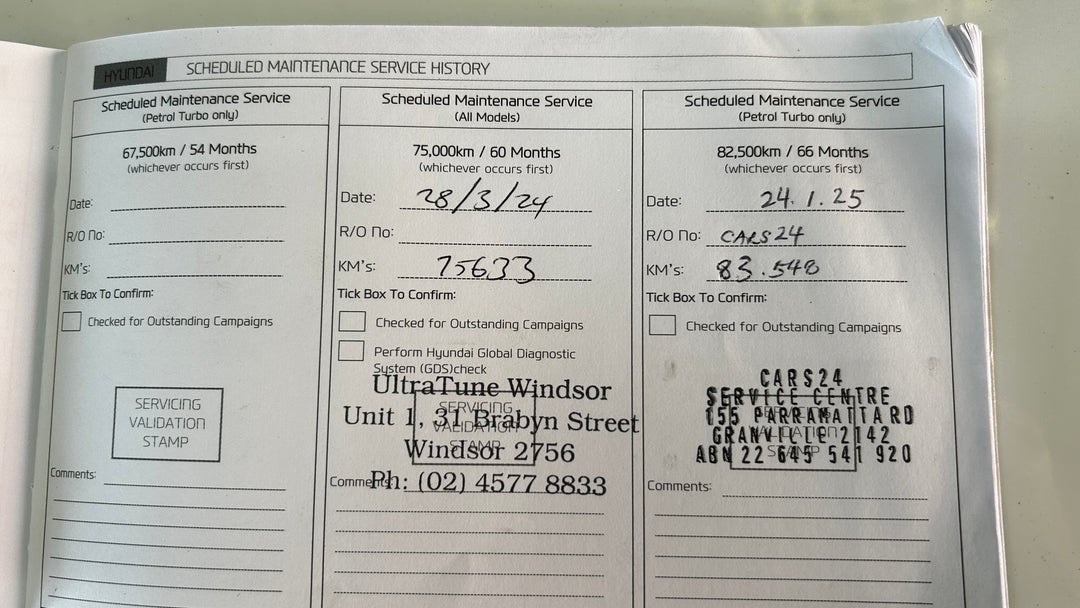 HYUNDAI SCHEDULED MAINTENANCE SERVICE HISTORY
Scheduled Maintenance Service
(Petrol Turbo only)
67,500km / 54 Months
(whichever occurs first)
Date:
R/O No:
KM's:
Tick Box To Confirm:
Checked for Outstanding Campaigns
SERVICING
VALIDATION
STAMP
Comments:
Scheduled Maintenance Service
(All Models)
75,000km / 60 Months
(whichever occurs first)
Date: 28/3/24
R/O No:
KM's: 75633
Tick Box To Confirm:
Checked for Outstanding Campaigns
Perform Hyundai Global Diagnostic
System (GDS)check
UltraTune Windsor
SERVICING
Unit 1, 31 Brabyn Street
VALIDATION
STAMP
Windsor 2756
Comments:
Ph: (02) 4577 8833
Scheduled Maintenance Service
(Petrol Turbo only)
82,500km / 66 Months
(whichever occurs first)
Date: 24.1.25
R/O No: CARS24
KM's: 83.548
Tick Box To Confirm:
Checked for Outstanding Campaigns
CARS24
SERVICE CENTRE
155 PARRAMATTARD
VALIDATION
GRANVILLE 2142
STAMP
ABN 22 645 541 920
Comments: